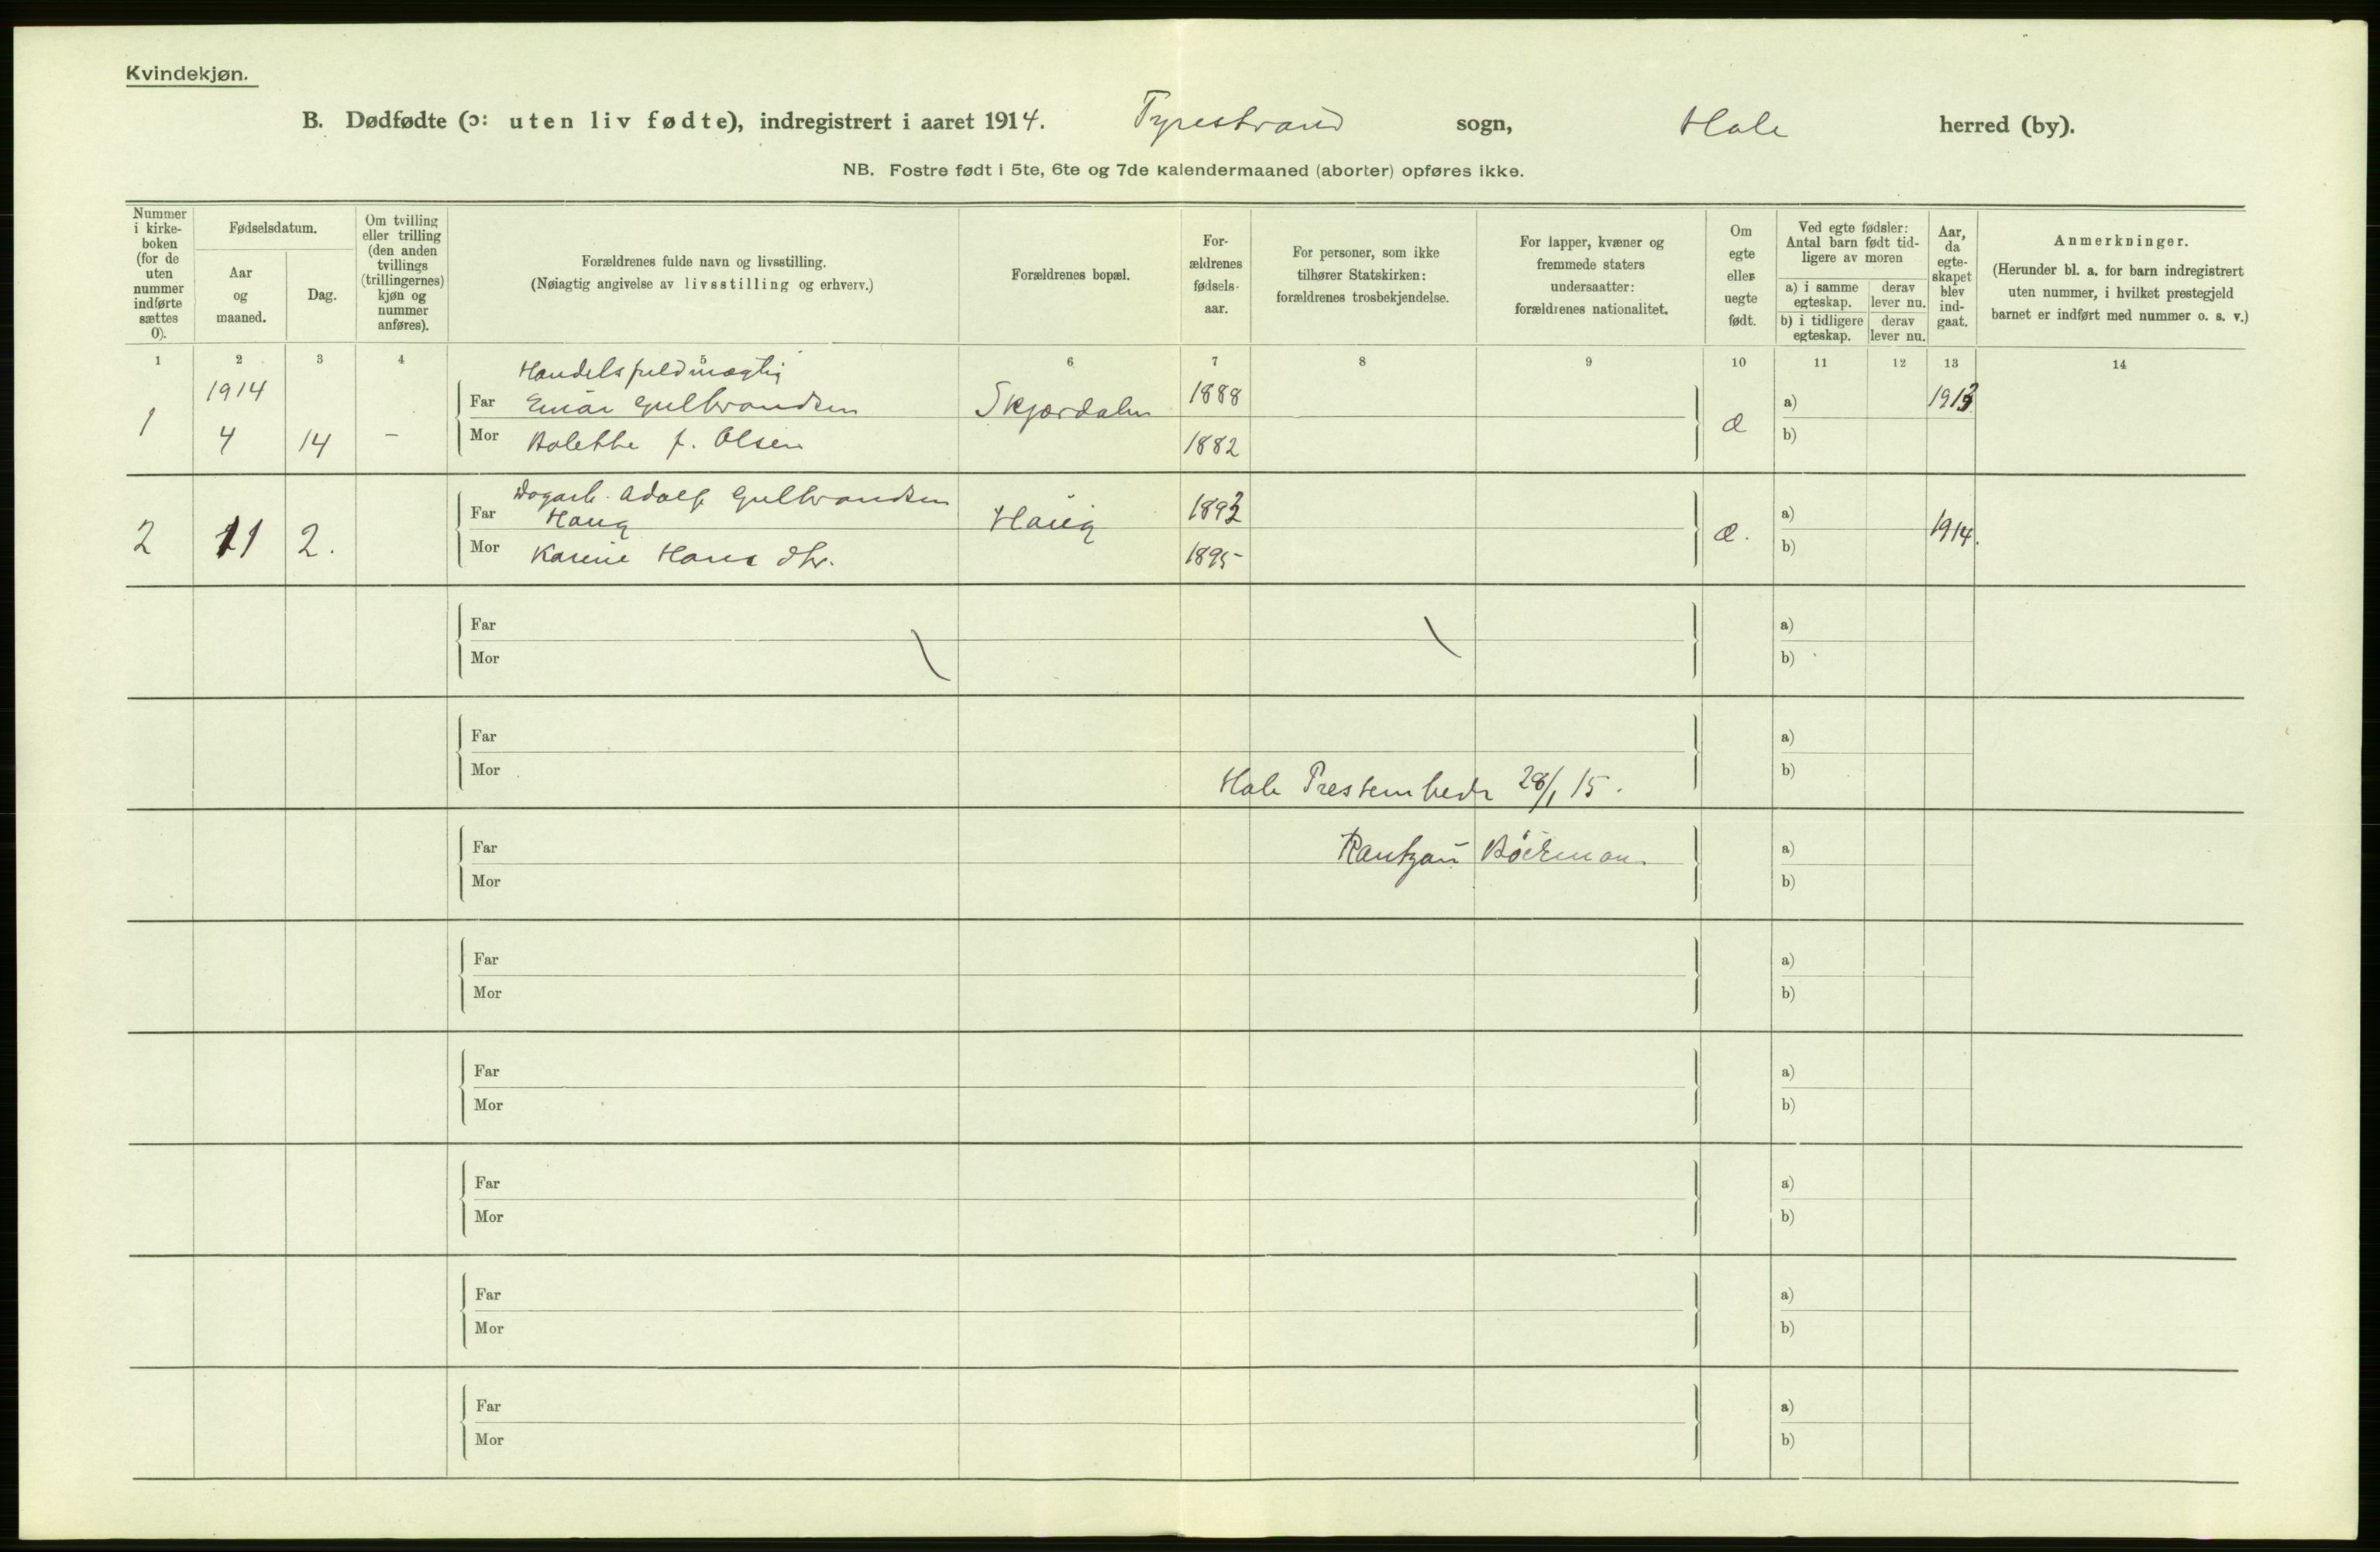 Kvindekjøn.
B. Dødfødte (ɔ: uten liv fødte), indregistrert i aaret 1914. Tyrestrand sogn, Hole herred (by).
NB. Fostre født i 5te, 6te og 7de kalendermaaned (aborter) opføres ikke.
Nummer
i kirke-
boken
(for de
uten
nummer
indførte
sættes
0).
Fødselsdatum.
Aar
og
maaned.
Dag.
Om tvilling
eller trilling
(den anden
tvillings
(trillingernes)
kjøn og
nummer
anføres).
Forældrenes fulde navn og livsstilling.
(Nøiagtig angivelse av livsstilling og erhverv.)
Forældrenes bopæl.
For-
ældrenes
fødsels-
aar.
For personer, som ikke
tilhører Statskirken:
forældrenes trosbekjendelse.
For lapper, kvæner og
fremmede staters
undersaatter:
forældrenes nationalitet.
Om
egte
eller
uegte
født.
Ved egte fødsler:
Antal barn født tid-
ligere av moren
a) i samme
egteskap.
derav
lever nu.
b) i tidligere
egteskap.
derav
lever nu.
Aar,
da
egte-
skapet
blev
ind-
gaat.
Anmerkninger.
(Herunder bl. a. for barn indregistrert
uten nummer, i hvilket prestegjeld
barnet er indført med nummer o. s. v.)
1 2 3 4 5 6 7 8 9 10 11 12 13 14
Handelsfuldmægtig
1914 Far Einar Gulbrandsen Skjærdalen 1888 a) 1913
1 4 14 – Mor Bolette f. Olsen 1882 æ b)
Dagarb. Adolf Gulbrandsen
Far Haug Haug 1893 a)
2 11 2. Mor Karine Hans dtr. 1895 æ. b) 1914.
Far a)
Mor b)
Far a)
Mor b)
Hole Presteembede 28/1 15.
Far Rantzau Bøckman a)
Mor b)
Far a)
Mor b)
Far a)
Mor b)
Far a)
Mor b)
Far a)
Mor b)
Far a)
Mor b)